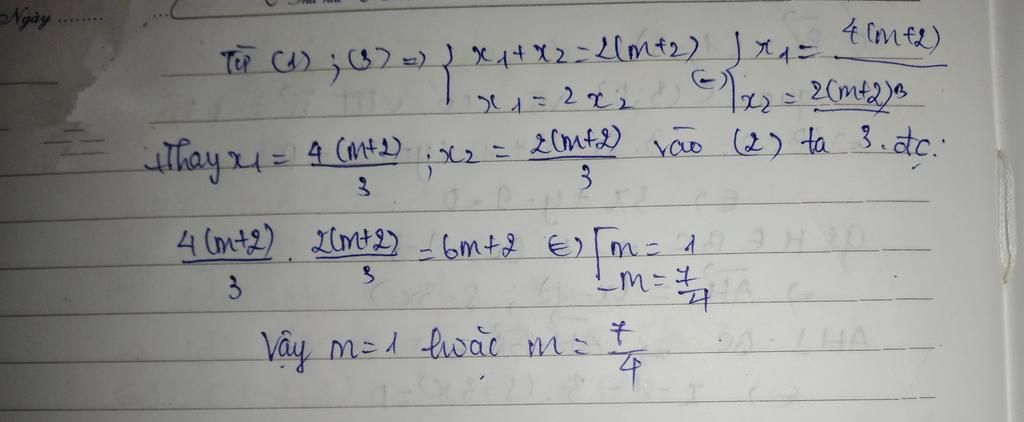 Ngày ........
Từ (1) ; (3) => { x1 + x2 = 2(m+2) } x1 = 4(m+2)
x1 = 2x2 (=) | x2 = 2(m+2) 3
+Thay x1 = 4(m+2)/3 ; x2 = 2(m+2)/3 vào (2) ta 3. đc:
4(m+2)/3 . 2(m+2)/3 = 6m+2 (=) [ m = 1
m = 7/4
Vậy m=1 hoặc m = 7/4